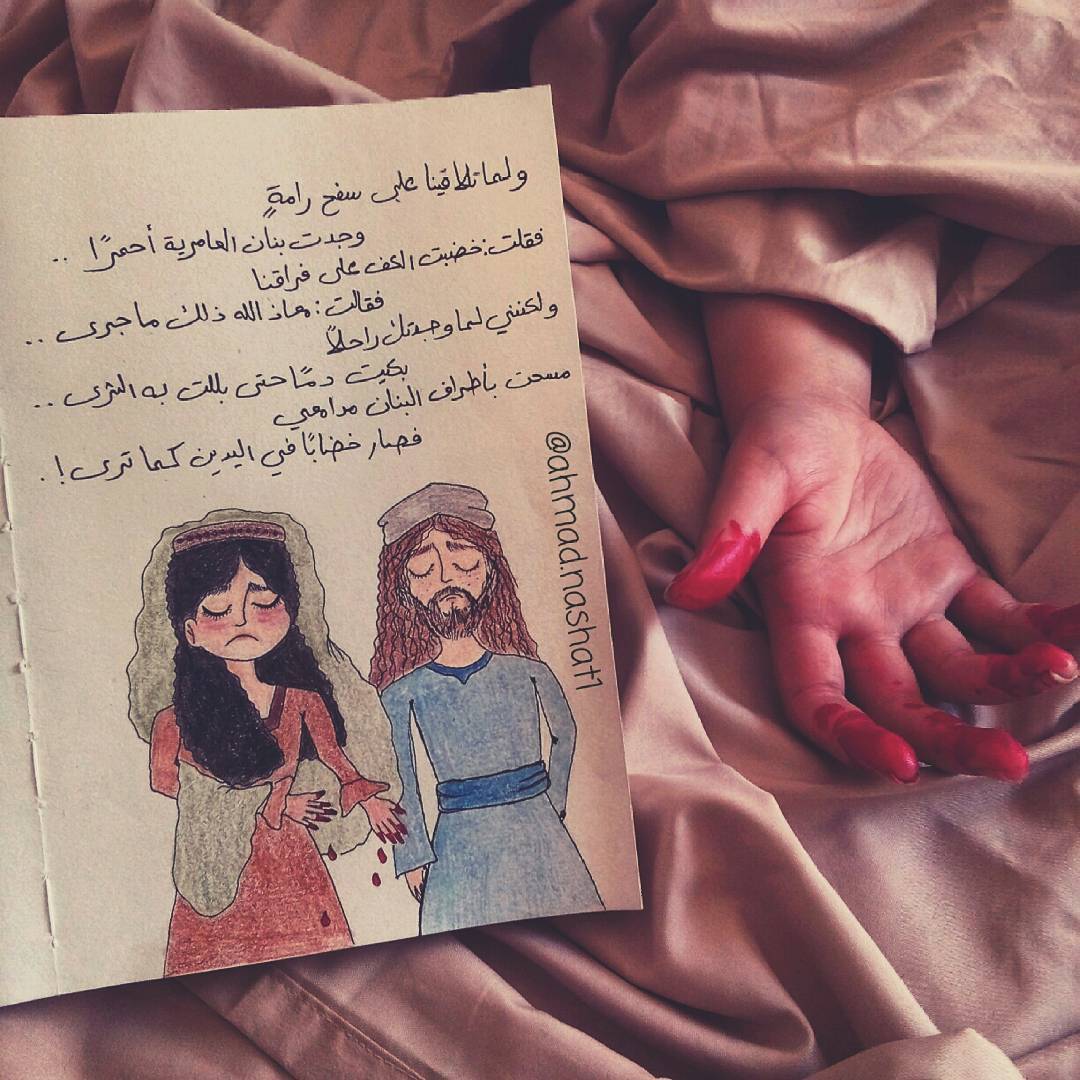 ولما تلاقينا على سفح رامةٍ
وجدت بنان العامرية أحمرًا ..
فقلت: خضبت الكف على فراقنا
فقالت: معاذ الله ذلك ما جرى ..
ولكنني لما وجدتك راحلًا
بكيت دمًا حتى بللت به الثرى ..
مسحت بأطراف البنان مدامعي
فصار خضابًا في اليدين كما ترى ! .
@ahmad.nashat1